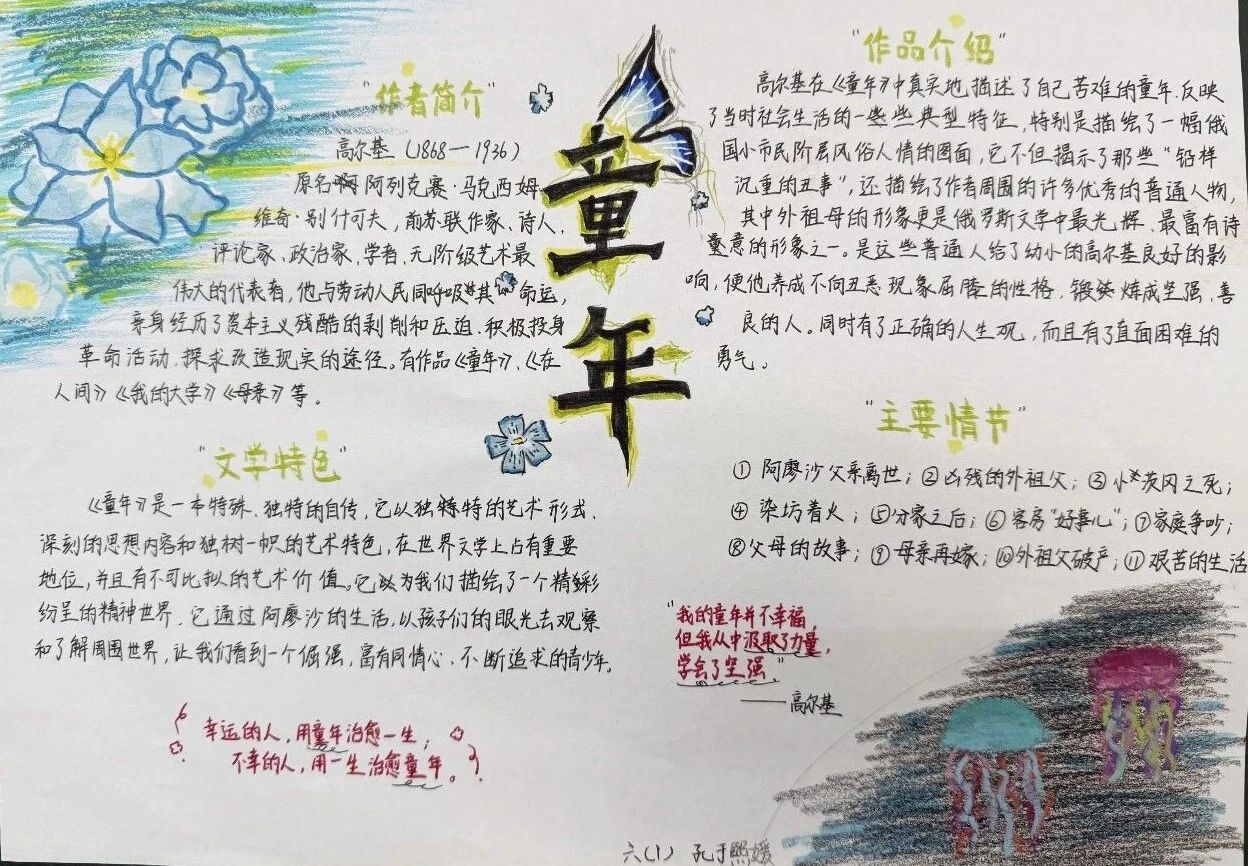 "作者简介"
高尔基（1868—1936）
原名阿列克赛·马克西姆
维奇·别什可夫，前苏联作家、诗人、
评论家、政治家、学者、无阶级艺术最
伟大的代表者，他与劳动人民同呼吸共其命运，
亲身经历了资本主义残酷的剥削和压迫、积极投身
革命活动、探求改造现实的途径。有作品《童年》、《在
人间》《我的大学》《母亲》等。
"文学特色"
《童年》是一本特殊、独特的自传，它以独特的艺术形式、
深刻的思想内容和独树一帜的艺术特色，在世界文学上占有重要
地位，并且有不可比拟的艺术价值。它为我们描绘了一个精彩
纷呈的精神世界，它通过阿廖沙的生活，以孩子们的眼光去观察
和了解周围世界，让我们看到一个倔强，富有同情心、不断追求的青少年。
幸运的人，用童年治愈一生；
不幸的人，用一生治愈童年。
童年
"作品介绍"
高尔基在《童年》中真实地描述了自己苦难的童年、反映
了当时社会生活的一些些典型特征，特别是描绘了一幅俄
国小市民阶层风俗人情的图画，它不但揭示了那些“铅样
沉重的丑事”，还描绘了作者周围的许多优秀的普通人物，
其中外祖母的形象更是俄罗斯文学中最光辉、最富有诗
意的形象之一。是这些普通人给了幼小的高尔基良好的影
响，使他养成不向丑恶现象屈膝的性格，锻炼成坚强、善
良的人。同时有了正确的人生观，而且有了直面困难的
勇气。
"主要情节"
① 阿廖沙父亲离世；② 凶残的外祖父；③ 小茨冈之死；
④ 染坊着火；⑤分家之后；⑥ 客房“好事儿”；⑦家庭争吵；
⑧父母的故事；⑨ 母亲再嫁；⑩外祖父破产；⑪ 艰苦的生活
"我的童年并不幸福，
但我从中汲取了力量，
学会了坚强"
——高尔基
六（1） 孔于熙媛